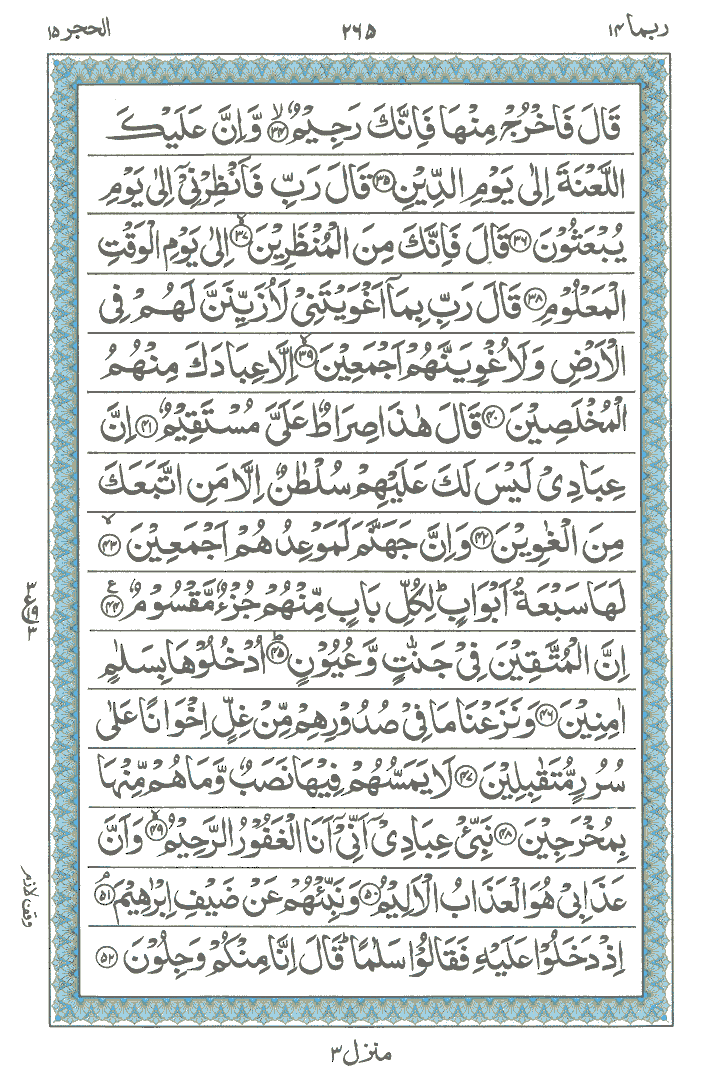 ربما ١٤ ٢٦٥ الحجر ١٥
قَالَ فَاخْرُجْ مِنْهَا فَاِنَّكَ رَجِيْمٌ ﴿٣٤﴾ۙ وَّاِنَّ عَلَيْكَ
اللَّعْنَةَ اِلٰى يَوْمِ الدِّيْنِ ﴿٣٥﴾ قَالَ رَبِّ فَاَنْظِرْنِيْٓ اِلٰى يَوْمِ
يُبْعَثُوْنَ ﴿٣٦﴾ قَالَ فَاِنَّكَ مِنَ الْمُنْظَرِيْنَ ﴿٣٧﴾ۙ اِلٰى يَوْمِ الْوَقْتِ
الْمَعْلُوْمِ ﴿٣٨﴾ قَالَ رَبِّ بِمَآ اَغْوَيْتَنِيْ لَاُزَيِّنَنَّ لَهُمْ فِى
الْاَرْضِ وَلَاُغْوِيَنَّهُمْ اَجْمَعِيْنَ ﴿٣٩﴾ۙ اِلَّا عِبَادَكَ مِنْهُمُ
الْمُخْلَصِيْنَ ﴿٤٠﴾ قَالَ هٰذَا صِرَاطٌ عَلَيَّ مُسْتَقِيْمٌ ﴿٤١﴾ اِنَّ
عِبَادِيْ لَيْسَ لَكَ عَلَيْهِمْ سُلْطٰنٌ اِلَّا مَنِ اتَّبَعَكَ
مِنَ الْغٰوِيْنَ ﴿٤٢﴾ وَاِنَّ جَهَنَّمَ لَمَوْعِدُهُمْ اَجْمَعِيْنَ ﴿٤٣﴾ۙ
لَهَا سَبْعَةُ اَبْوَابٍؕ لِكُلِّ بَابٍ مِّنْهُمْ جُزْءٌ مَّقْسُوْمٌ ﴿٤٤﴾ ع
اِنَّ الْمُتَّقِيْنَ فِيْ جَنّٰتٍ وَّعُيُوْنٍ ﴿٤٥﴾ؕ اُدْخُلُوْهَا بِسَلٰمٍ
اٰمِنِيْنَ ﴿٤٦﴾ وَنَزَعْنَا مَا فِيْ صُدُوْرِهِمْ مِّنْ غِلٍّ اِخْوَانًا عَلٰى
سُرُرٍ مُّتَقٰبِلِيْنَ ﴿٤٧﴾ لَا يَمَسُّهُمْ فِيْهَا نَصَبٌ وَّمَا هُمْ مِّنْهَا
بِمُخْرَجِيْنَ ﴿٤٨﴾ نَبِّئْ عِبَادِيْٓ اَنِّيْٓ اَنَا الْغَفُوْرُ الرَّحِيْمُ ﴿٤٩﴾ۙ وَاَنَّ
عَذَابِيْ هُوَ الْعَذَابُ الْاَلِيْمُ ﴿٥٠﴾ وَنَبِّئْهُمْ عَنْ ضَيْفِ اِبْرٰهِيْمَ ﴿٥١﴾ۘ
وقف لازم
اِذْ دَخَلُوْا عَلَيْهِ فَقَالُوْا سَلٰمًاؕ قَالَ اِنَّا مِنْكُمْ وَجِلُوْنَ ﴿٥٢﴾
منزل ٣